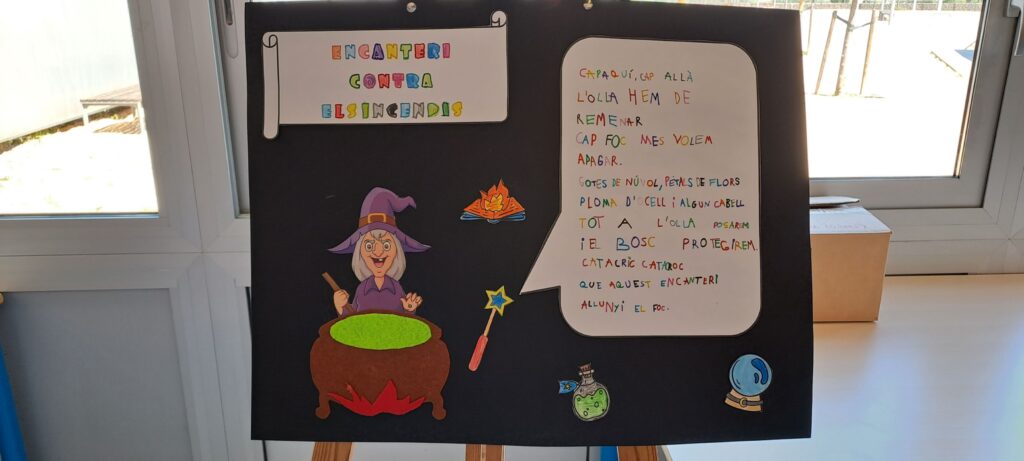 ENCANTERI
CONTRA
ELS INCENDIS
CAP AQUÍ, CAP ALLÀ
L'OLLA HEM DE
REMENAR
CAP FOC MES VOLEM
APAGAR.
GOTES DE NÚVOL, PÉTALS DE FLORS
PLOMA D'OCELL I ALGUN CABELL
TOT A L'OLLA POSAREM
I EL BOSC PROTEGIREM.
CATACRIC CATACROC
QUE AQUEST ENCANTERI
ALLUNYI EL FOC.